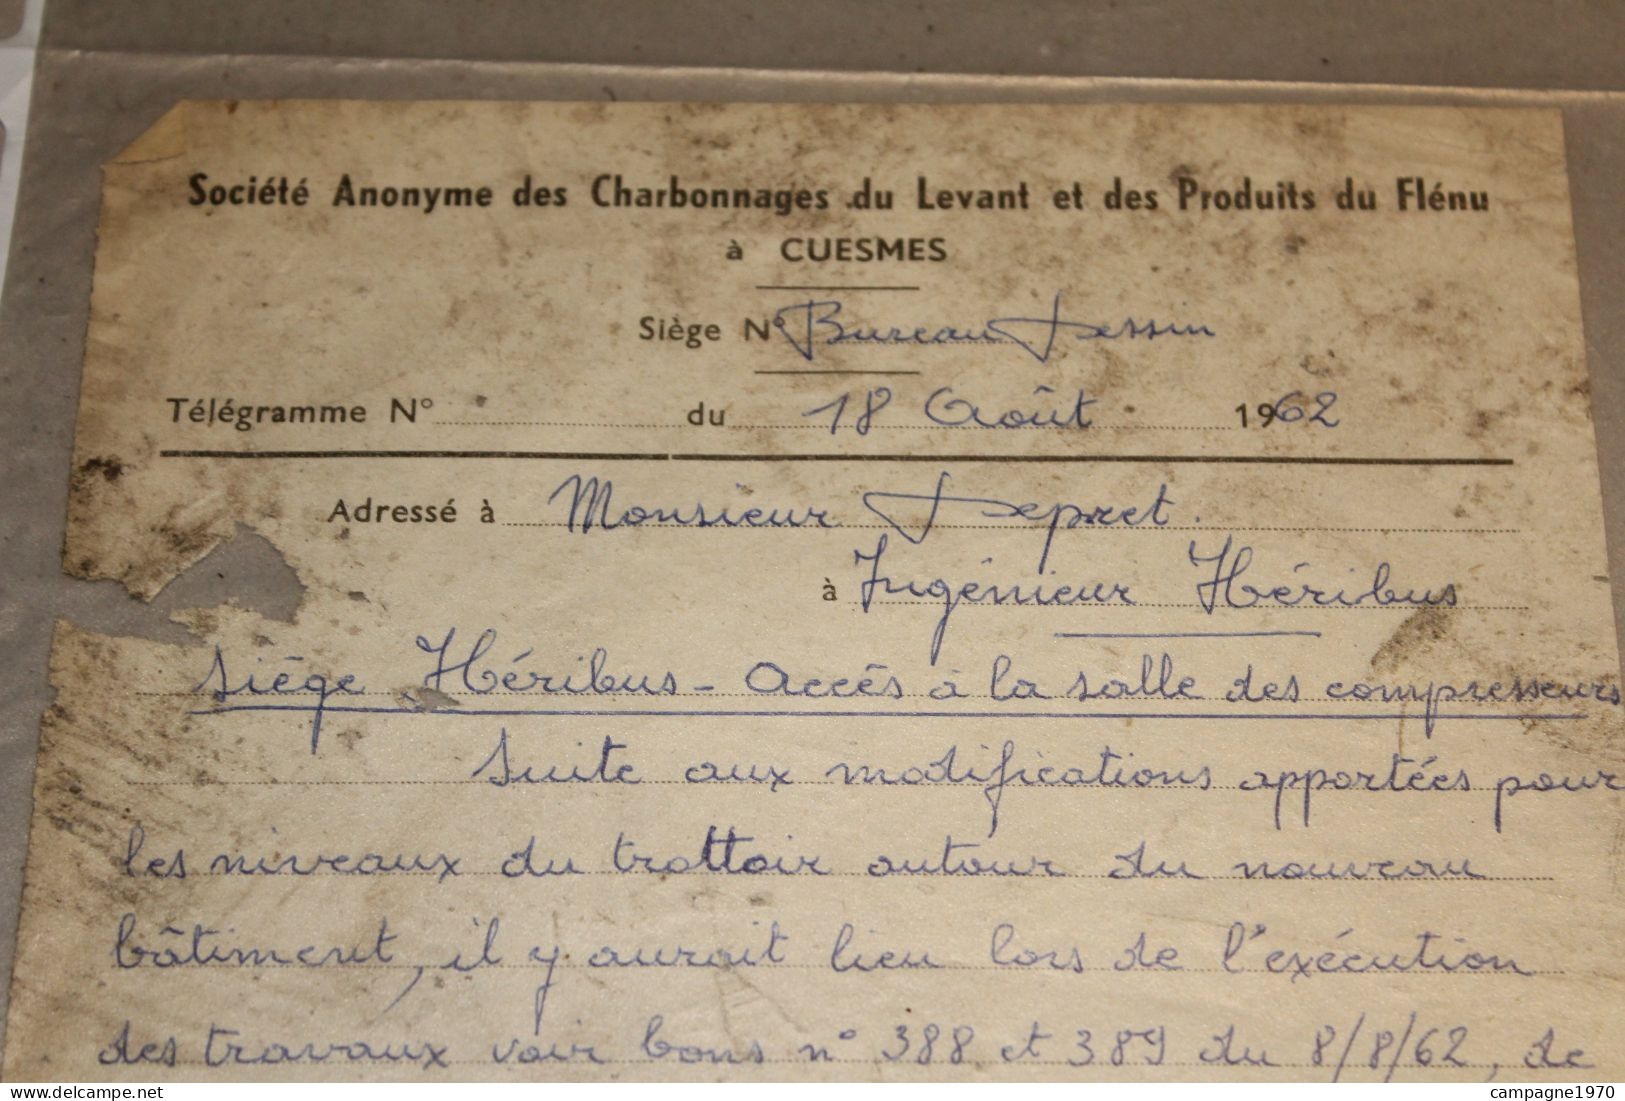 Société Anonyme des Charbonnages du Levant et des Produits du Flénu
à CUESMES
Siège N° Bureau Dessin
Télégramme N° du 18 Août 1962
Adressé à Monsieur Depret.
à Ingénieur Héribus
Siège Héribus - Accès à la salle des compresseurs
Suite aux modifications apportées pour
les niveaux du trottoir autour du nouveau
bâtiment, il y aurait lieu lors de l'exécution
des travaux voir bons n° 388 et 389 du 8/8/62, de
www.delcampe.net
campagne1970